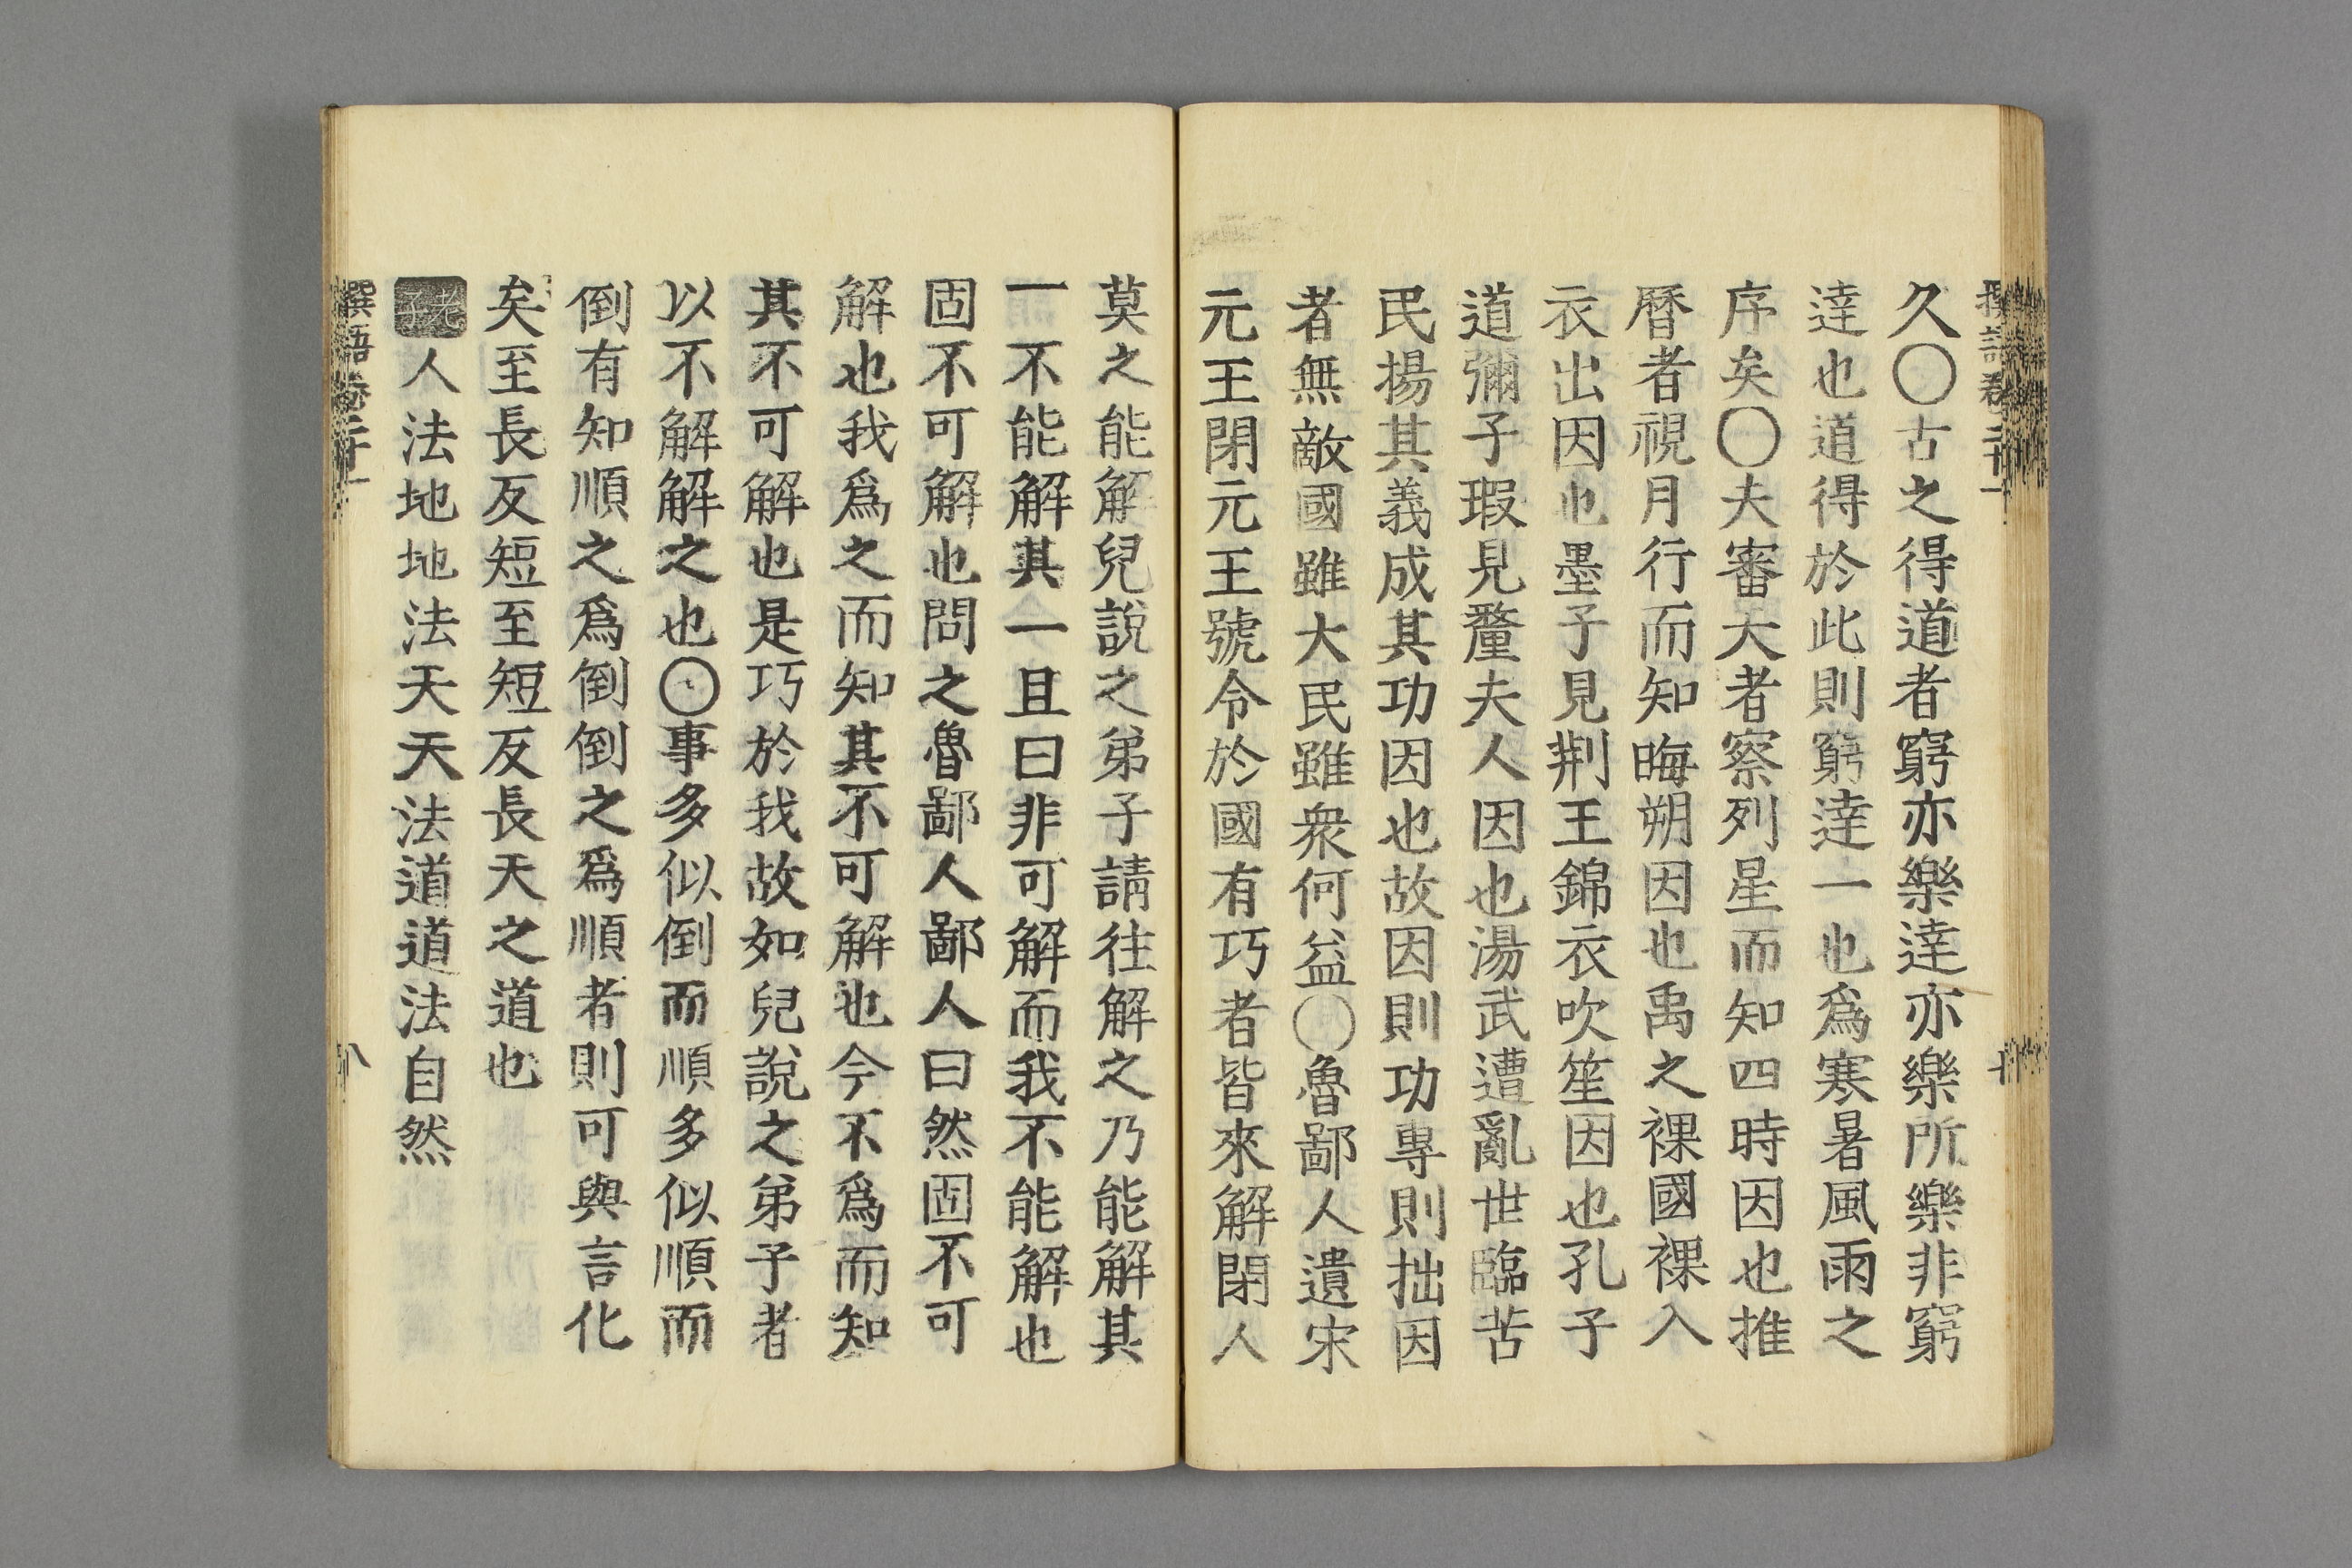 撰語卷二十一
久〇古之得道者窮亦樂達亦樂所樂非窮
達也道得於此則窮達一也爲寒暑風雨之
序矣〇夫審天者察列星而知四時因也推
曆者視月行而知晦朔因也禹之裸國裸入
衣出因也墨子見荆王錦衣吹笙因也孔子
道彌子瑕見釐夫人因也湯武遭亂世臨苦
民揚其義成其功因也故因則功專則拙因
者無敵國雖大民雖衆何益〇魯鄙人遺宋
元王閉元王號令於國有巧者皆來解閉人
莫之能解兒說之弟子請往解之乃能解其
一不能解其一且曰非可解而我不能解也
固不可解也問之魯鄙人鄙人曰然固不可
解也我爲之而知其不可解也今不爲而知
其不可解也是巧於我故如兒說之弟子者
以不解解之也〇事多似倒而順多似順而
倒有知順之爲倒倒之爲順者則可與言化
矣至長反短至短反長天之道也
老子人法地地法天天法道道法自然
撰語卷二十一
八